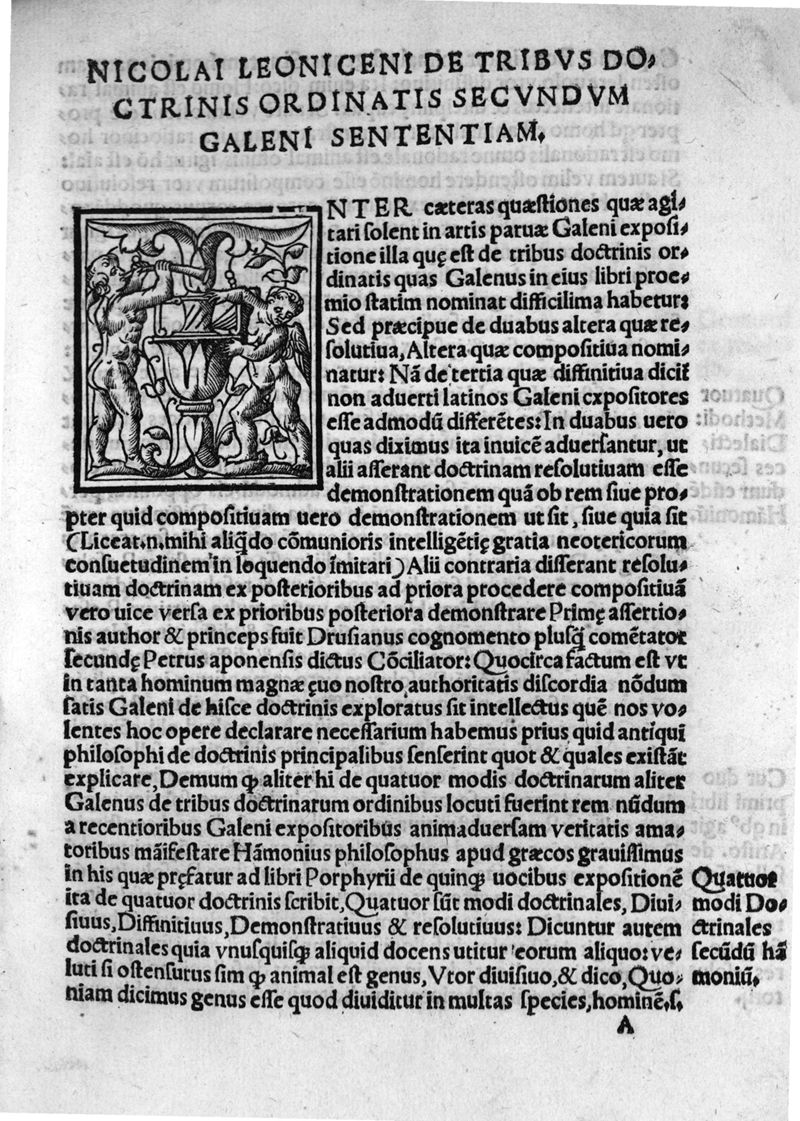 NICOLAI LEONICENI DE TRIBVS DO-
CTRINIS ORDINATIS SECVNDVM
GALENI SENTENTIAM.
NTER cæteras quæstiones quæ agi-
tari solent in artis paruæ Galeni exposi-
tione illa quę est de tribus doctrinis or-
dinatis quas Galenus in eius libri proe-
mio statim nominat difficilima habetur:
Sed præcipue de duabus altera quæ re-
solutiua, Altera quæ compositiua nomi-
natur: Nā de tertia quæ diffinitiua dicit̃
non aduerti latinos Galeni expositores
esse admodū differētes: In duabus uero
quas diximus ita inuicē aduersantur, ut
alii asserant doctrinam resolutiuam esse
demonstrationem quā ob rem siue pro-
pter quid compositiuam uero demonstrationem ut sit, siue quia sit
(Liceat.n.mihi aliq̃do cōmunioris intelligētię gratia neotericorum
consuetudinem in loquendo imitari) Alii contraria differant resolu-
tiuam doctrinam ex posterioribus ad priora procedere compositiuā
vero uice versa ex prioribus posteriora demonstrare Primę assertio-
nis author & princeps fuit Drusianus cognomento plusq̃ comētator
secundę Petrus aponensis dictus Cōciliator: Quocirca factum est vt
in tanta hominum magnæ ęuo nostro authoritatis discordia nōdum
satis Galeni de hisce doctrinis exploratus sit intellectus quē nos vo-
lentes hoc opere declarare necessarium habemus prius quid antiqui
philosophi de doctrinis principalibus senserint quot & quales existāt
explicare, Demum ꝙ aliter hi de quatuor modis doctrinarum aliter
Galenus de tribus doctrinarum ordinibus locuti fuerint rem nūdum
a recentioribus Galeni expositoribus animaduersam veritatis ama-
toribus māifestare Hāmonius philosophus apud græcos grauissimus
in his quæ pręfatur ad libri Porphyrii de quinqꝫ uocibus expositionē
ita de quatuor doctrinis scribit, Quatuor sūt modi doctrinales, Diui-
siuus, Diffinitiuus, Demonstratiuus & resolutiuus: Dicuntur autem
doctrinales quia vnusquisqꝫ aliquid docens utitur eorum aliquo: ve-
luti si ostensurus sim ꝙ animal est genus, Vtor diuisiuo, & dico, Quo-
niam dicimus genus esse quod diuiditur in multas species, hominē.s.
Quatuor
modi Do-
ctrinales
secūdū hā
moniū.
A